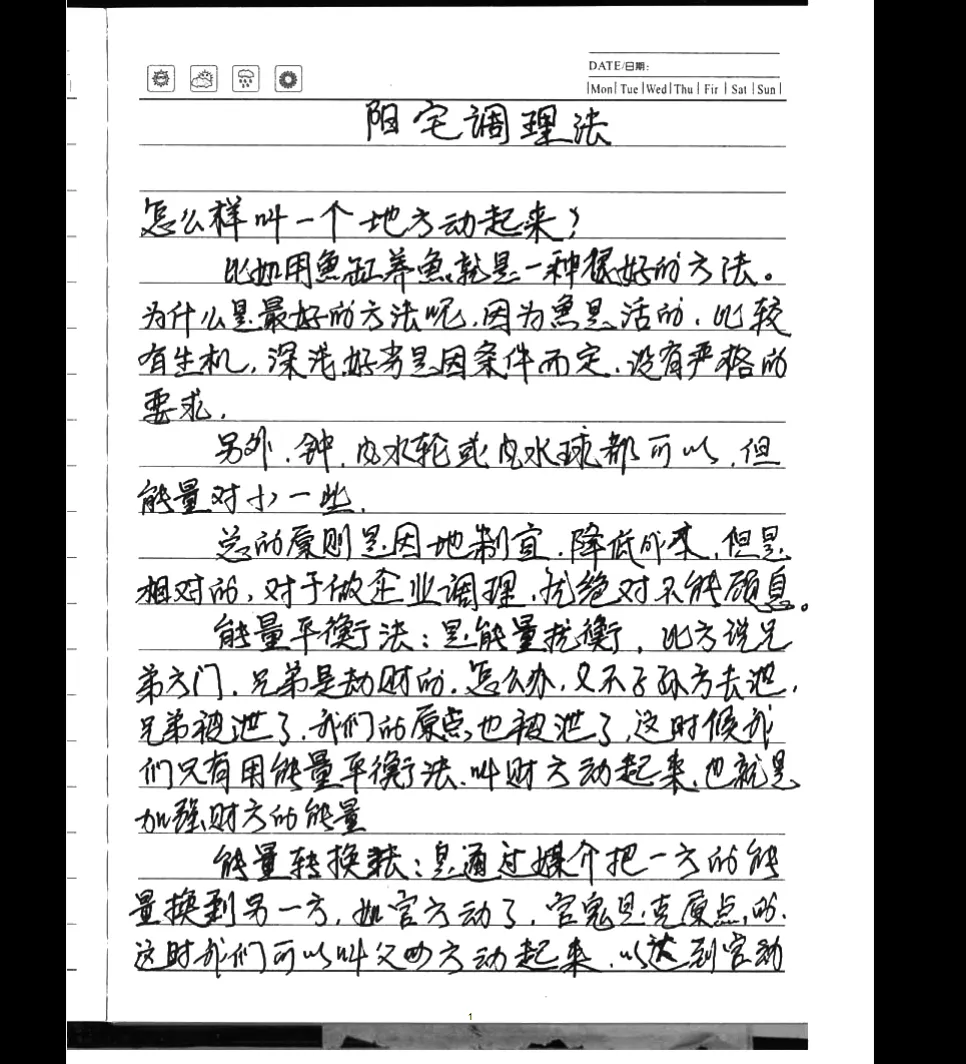 DATE/日期:
Mon Tue Wed Thu Fir Sat Sun
阳宅调理法
怎么样叫一个地方动起来?
比如用鱼缸养鱼就是一种很好的方法。
为什么是最好的方法呢,因为鱼是活的,比较
有生机,深浅好劣是因条件而定,没有严格的
要求,
另外,钟,风水轮或风水球都可以,但
能量对小一些,
总的原则是因地制宜,降低成本,但是
相对的,对于做企业调理,就绝对不能顾息。
能量平衡法:是能量抗衡,比方说兄
弟方门,兄弟是劫财的,怎么办,又不子孙方去泄,
兄弟被泄了,我们的原点也被泄了,这时候我
们只有用能量平衡法,叫财方动起来,也就是
加强财方的能量
能量转换法:是通过媒介把一方的能
量换到另一方,如官方动了,官鬼是克原点的,
这时我们可以叫父母方动起来,以达到官动
1